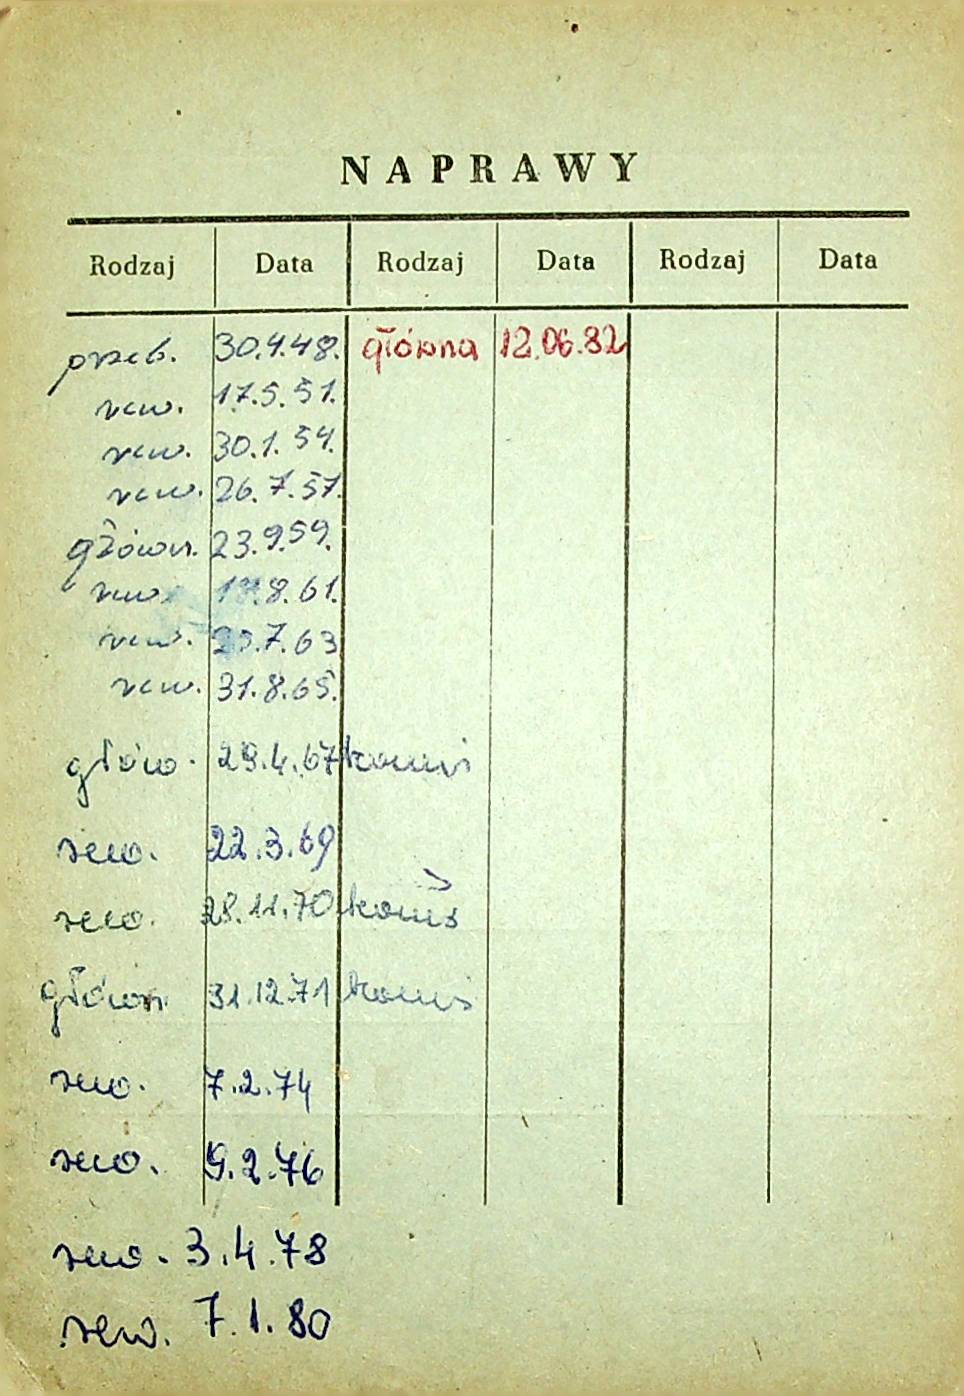 NAPRAWY
Rodzaj Data Rodzaj Data Rodzaj Data
przeb. 30.4.48. główna 12.06.82
rew. 17.5.51.
rew. 30.1.54.
rew. 26.7.57.
główn. 23.9.59.
rew. 8.61.
rew. 7.63
rew. 31.8.65.
głów. 29.4.67
rew. 22.3.69
rew. 28.11.70
główn 31.12.71
rew. 7.2.74
rew. 9.2.76
rew. 3.4.78
rew. 7.1.80